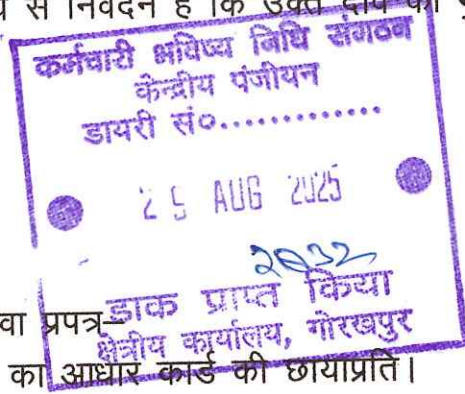 से निवेदन है कि उक्त दावे
कर्मचारी भविष्य निधि संगठन
केन्द्रीय पंजीयन
डायरी सं०.............
AUG 2025
डाक प्राप्त किया
क्षेत्रीय कार्यालय, गोरखपुर
वा प्रपत्र–
का आधार कार्ड की छायाप्रति।